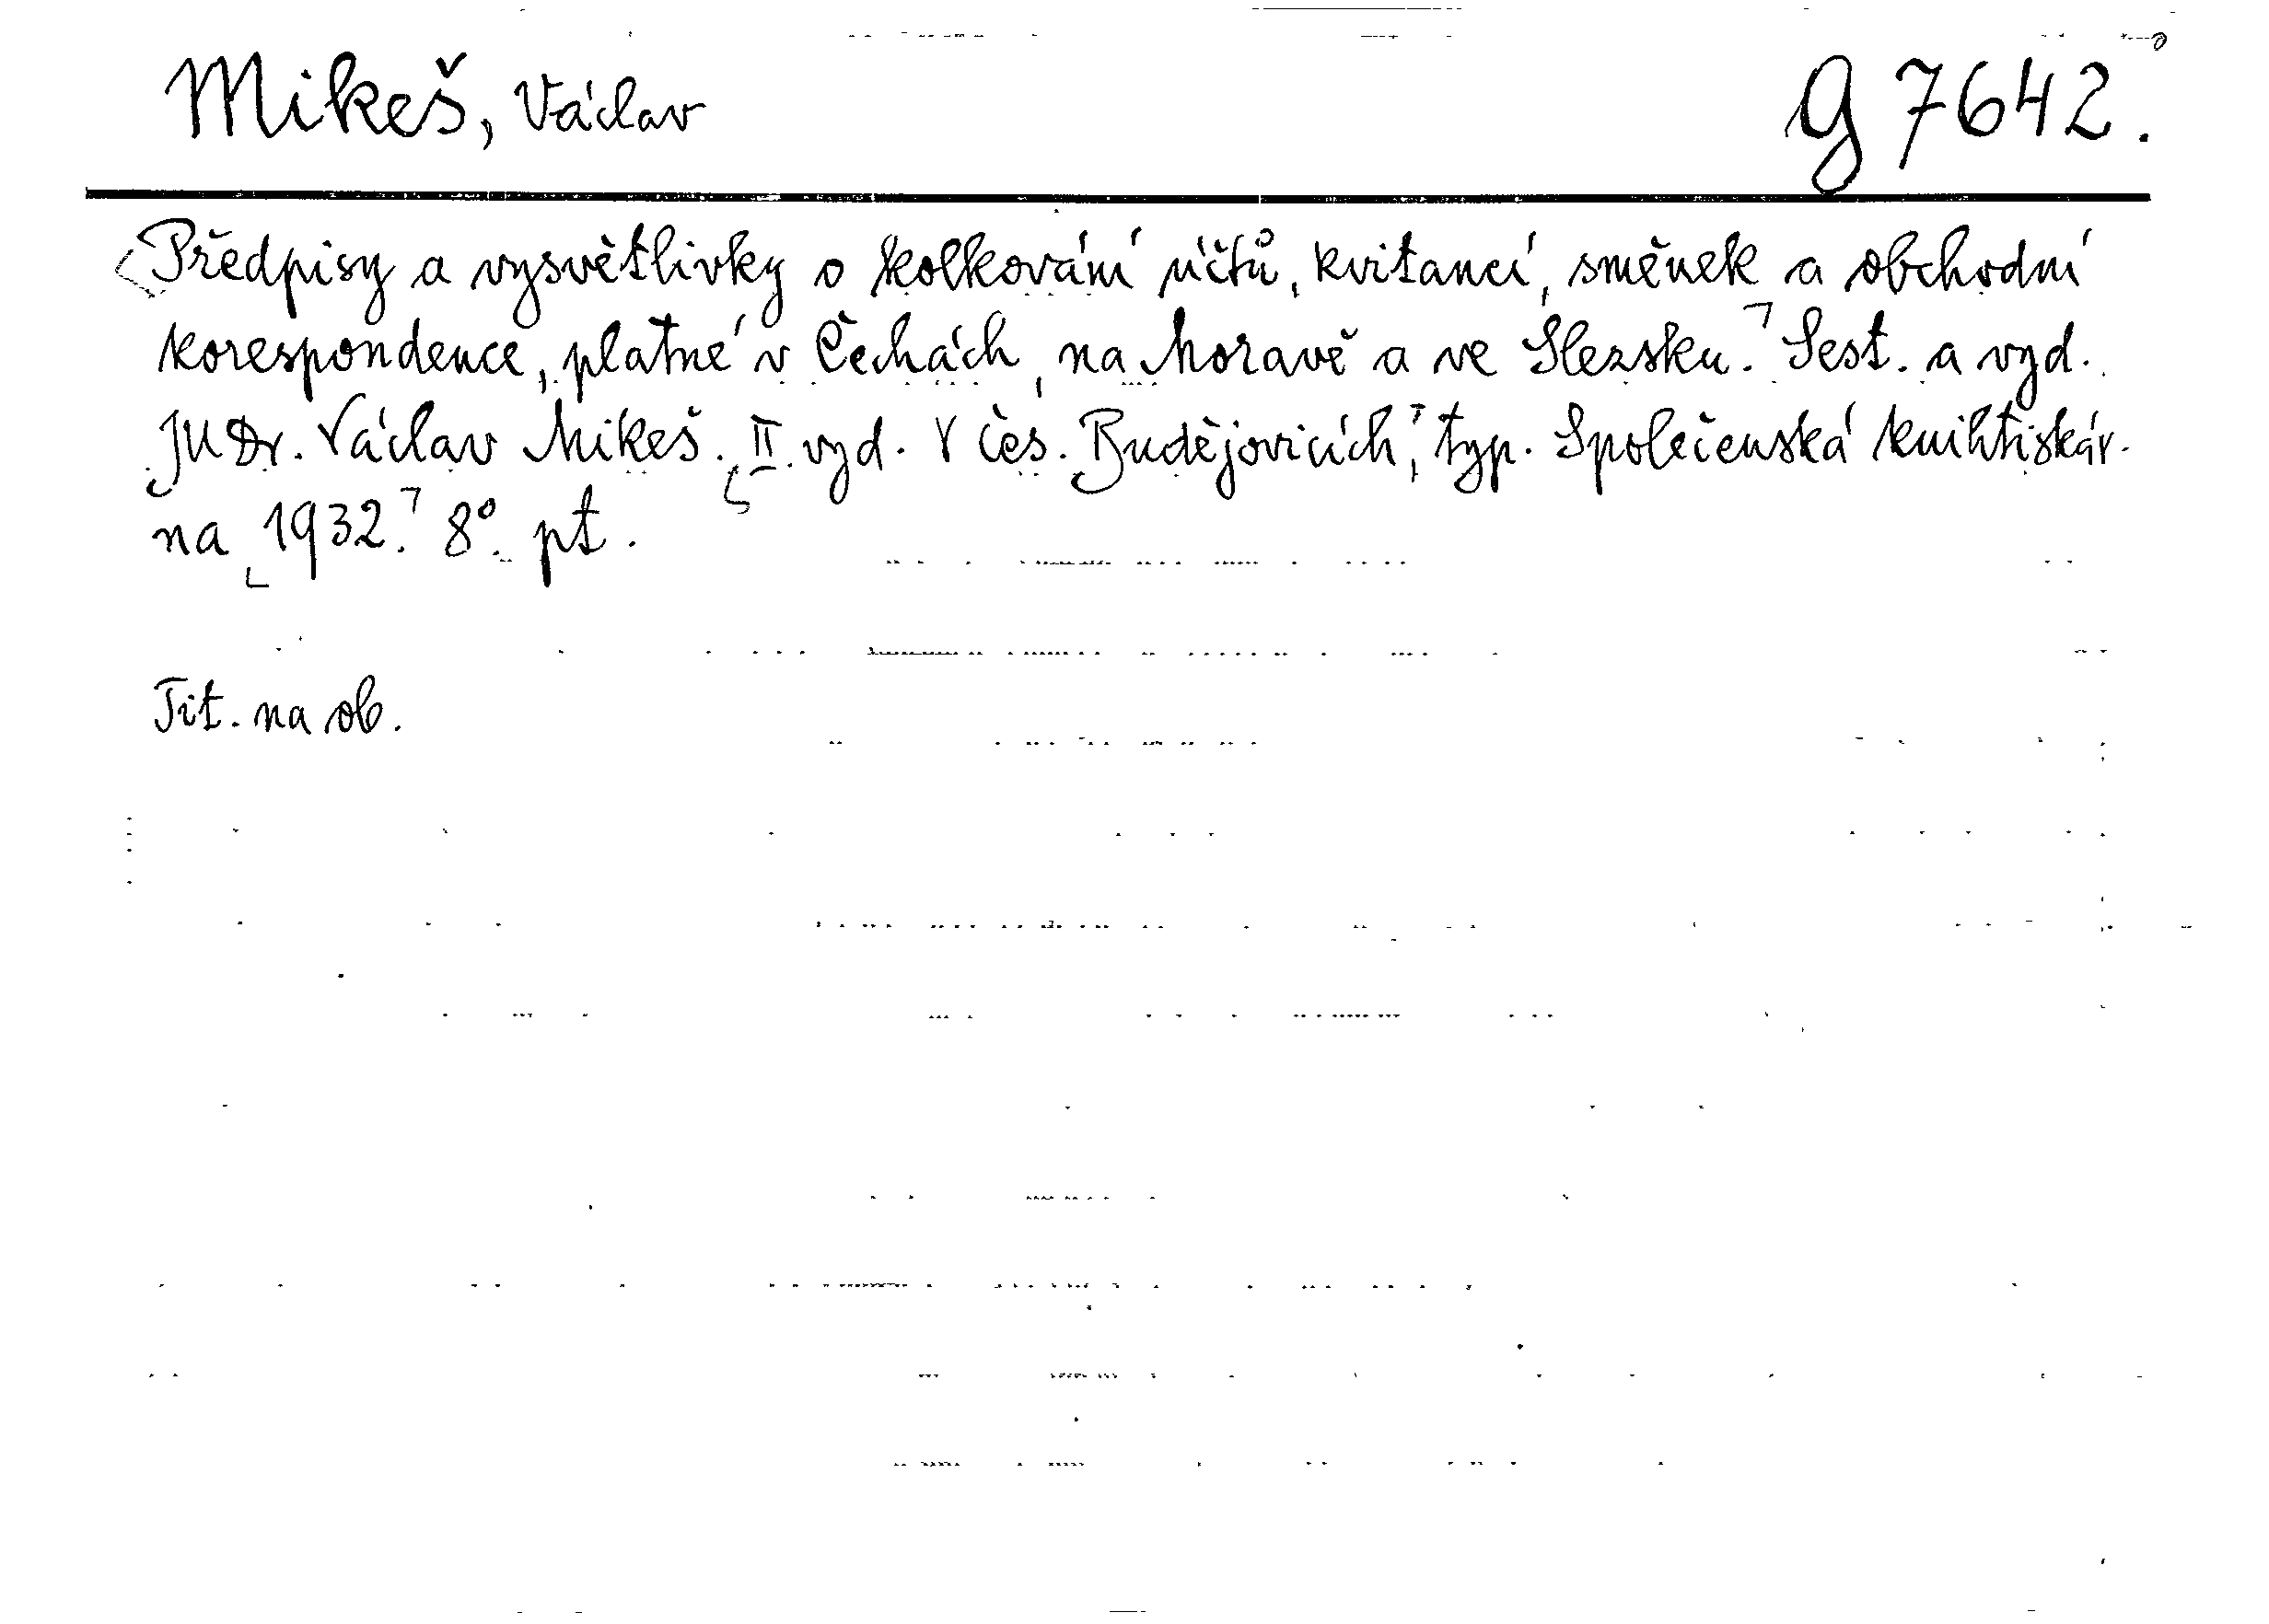 Mikeš, Václav
g 7642.
Předpisy a vysvětlivky o kolkování účtů, kvitancí, směnek a obchodní
korespondence, platné v Čechách, na Moravě a ve Slezsku. Sest. a vyd.
JUDr. Václav Mikeš. II. vyd. V Čes. Budějovicích, typ. Společenská knihtiskár-
na 1932. 8° pt.
Tit. na ob.